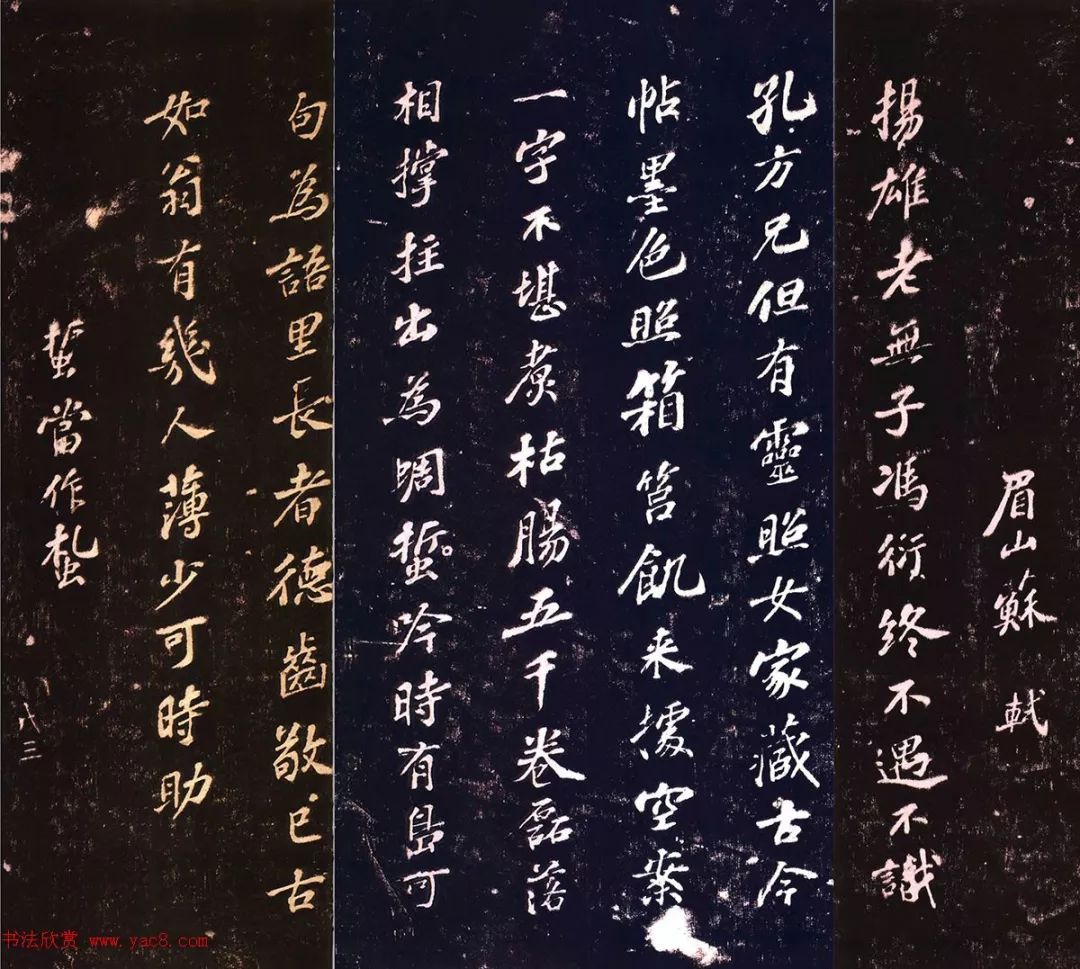 眉山蘇軾
揚雄老無子馮衍終不遇不識
孔方兄但有靈照女家藏古今
帖墨色照箱筥飢来據空案
一字不堪煑枯腸五千卷磊落
相撑拄出為蜩蜇吟時有島可
句為語里長者德齒敬已古
如翁有幾人薄少可時助
蜇當作蚻
八三
书法欣赏 www.yac8.com